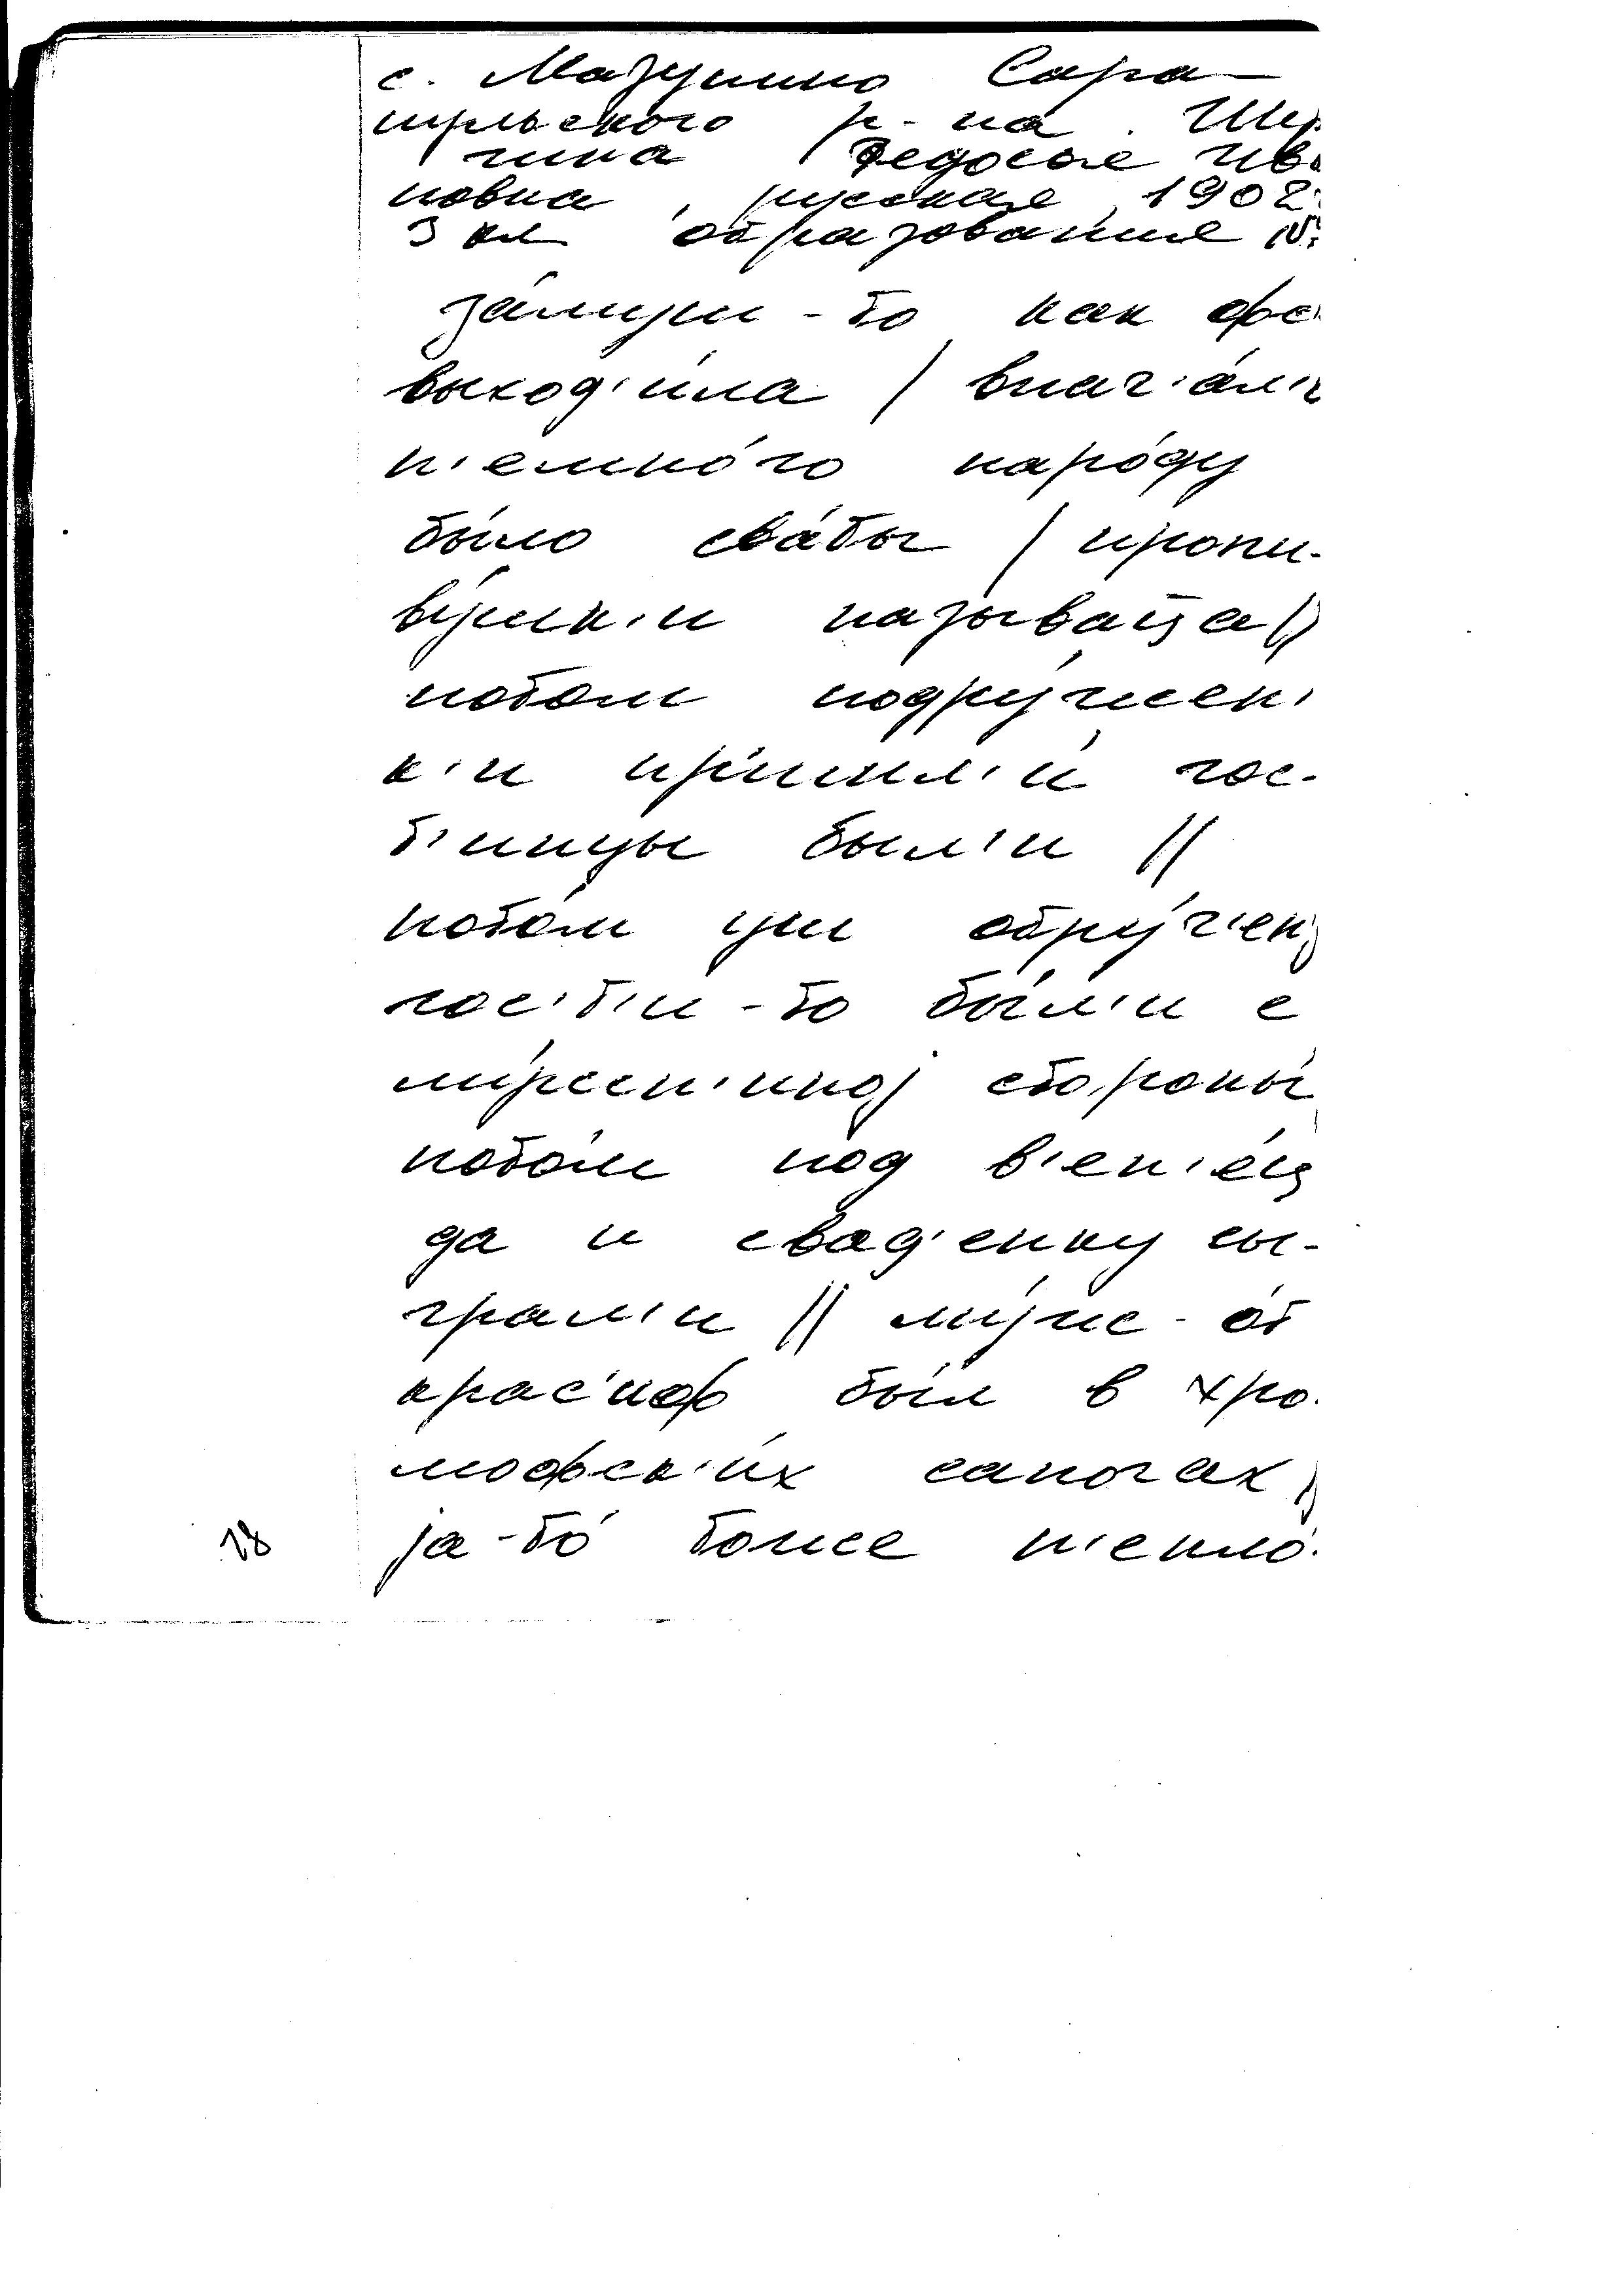 с. Мазунино Сара-
пульского р-на. Шу
гина Федосья Ива
новна, русская, 1902
3 кл образования
за́муш-то как
выход'и́ла / внач'а́л'
н'емно́го наро́ду
бы́ло сва́ты / пропи-
ву́шк'и называ́цца //
потом подру́жен'
к'и пр'ишл'и́ гос-
т'инцы был'и //
пото́м уш обру́ч'ен'
гос'т'и-то бы́л'и с
му́жен'иноj стороны́
пото́м под в'ен'е́ц
да и свад'енку сы-
грал'и // му́ж-от
крас'иф был в хро-
мофск'их сапогах
jа-то́ тоже н'епло́-
28